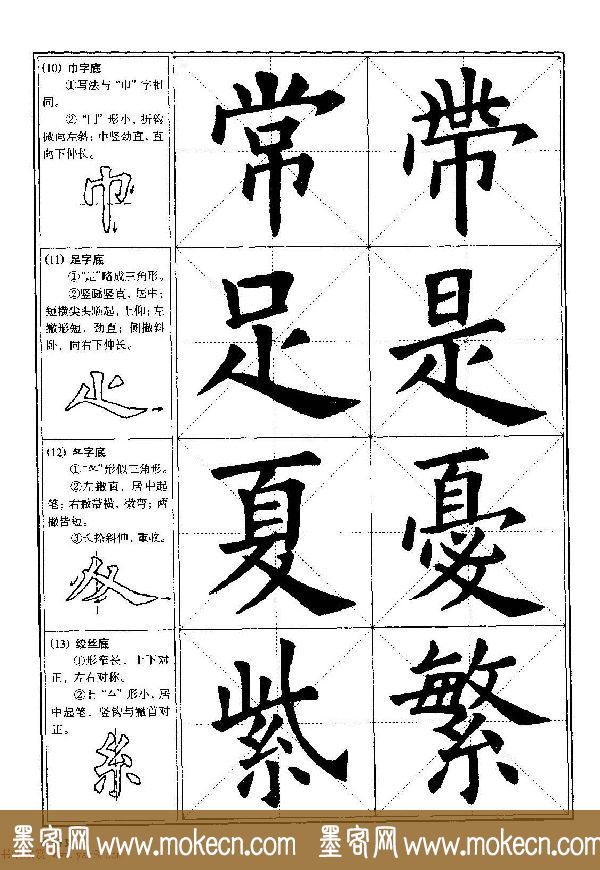 (10) 巾字底
①写法与“巾”字相
同。
②“冂”形小，折钩
微向左斜；中竖劲直，直
向下伸长。
巾
常 帶
(11) 足字底
①“龰”略成三角形。
②竖画竖直，居中；
短横尖头顺起，上仰；左
撇形短，劲直；侧撇斜
卧，向右下伸长。
龰
足 是
(12) 冬字底
①“夂”形似三角形。
②左撇直，居中起
笔；右撇带横，微弯；两
撇皆短。
③长捺斜伸，重收。
夂
夏 憂
(13) 绞丝底
①形窄长，上下对
正，左右对称。
②上“幺”形小，居
中起笔，竖钩与撇首对
正。
糸
紫 繁
墨客网 www.mokecn.com 墨客网 www.mokecn.com